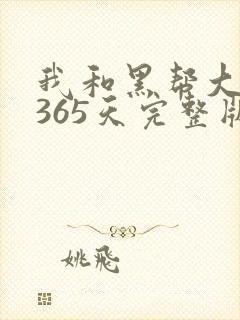 我和黑帮大
365天完整版
姚飛